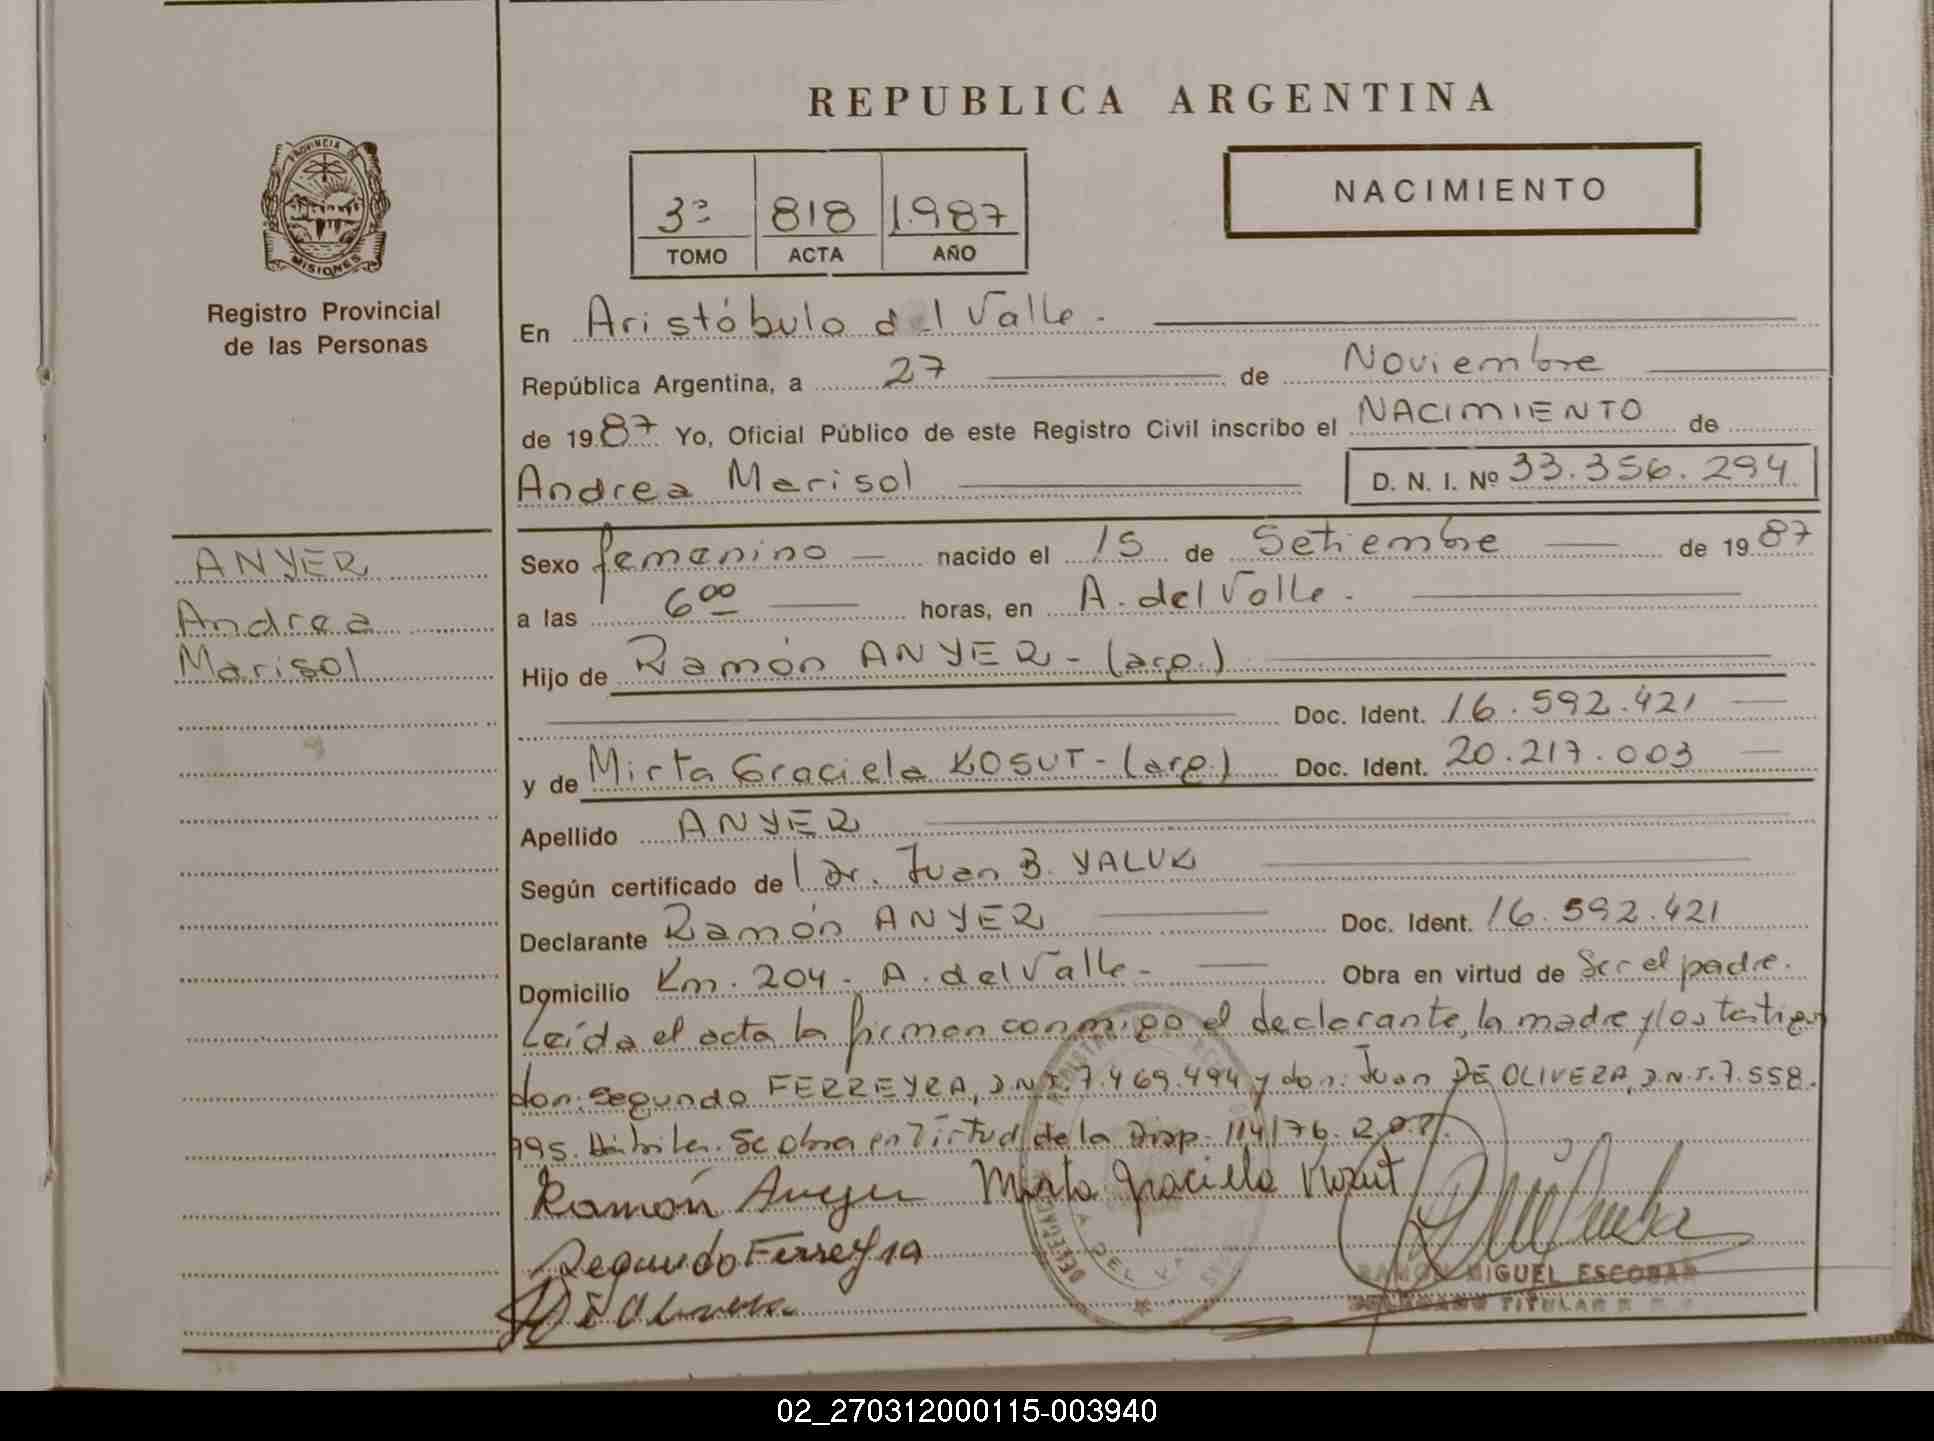 REPUBLICA ARGENTINA
NACIMIENTO
3º 818 1.987
TOMO ACTA AÑO
PROVINCIA DE
MISIONES
Registro Provincial
de las Personas
En Aristóbulo del Valle.-
República Argentina, a 27 de Noviembre
de 1987 Yo, Oficial Público de este Registro Civil inscribo el NACIMIENTO de
Andrea Marisol D. N. I. Nº 33.356.294
ANYER
Andrea
Marisol
Sexo femenino nacido el 15 de Setiembre de 1987
a las 6 00 horas, en A. del Valle.-
Hijo de Ramón ANYER - (arg.)
Doc. Ident. 16.592.421
y de Mirta Graciela KOSUT - (arg.) Doc. Ident. 20.217.003
Apellido ANYER
Según certificado de Dr. Juan B. YALUK
Declarante Ramón ANYER Doc. Ident. 16.592.421
Domicilio Km. 204 - A. del Valle - Obra en virtud de Ser el padre.
Leída el acta la firman conmigo el declarante, la madre y los testigos
don: Segundo FERREYRA, D.N.I. 7.469.494 y don: Juan DE OLIVERA, D.N.I. 7.558.
995. Hábiles. Se obra en Virtud de la Disp. 114/76.
Ramón Anyer Mirta Graciela Kozut
Segundo Ferreyra
RAMON MIGUEL ESCOBAR
TITULAR
02_270312000115-003940